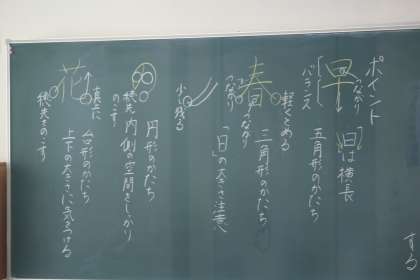 ポイント
つながり
早
「日」は横長
バランス
五角形のかたち
軽くとめる
春
つながり
つながり
三角形のかたち
「日」の大きさ注意
少し残る
円形のかたち
内側の空間をしっかり
穂先
のこす
花
真上に
台形のかたち
上下の大きさに気をつける
穂先をのこす
する